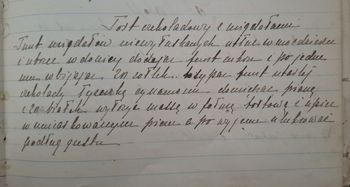 Tort czekoladowy z migdałami
Funt migdałów niewyłuskanych utłuc w moździerzu
i utrzeć w donicy dodając funt cukru i po jedne
mu wbijając 20 żółtek. wsypać funt utartej
czekolady łyżeczkę cynamonu domieszać pianę
z 20 białek wyłożyć masę w formę tortową i upiec
w umiarkowanym piecu a po wyjęciu ulukrować
podług gustu.